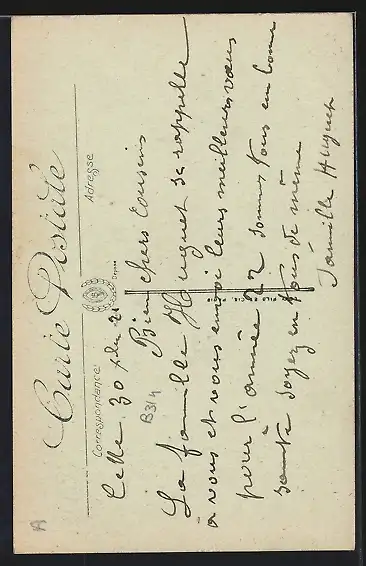 Carte Postale
Correspondance
Adresse
Celle 30 / du 21
Bien chers Cousins
La famille Huguet se rappelle
a vous et vous envoi leurs meilleurs vœux
pour l'année 22 sommes tous en bonne
santé soyez en tous de même
Famille Huguet
B314
A